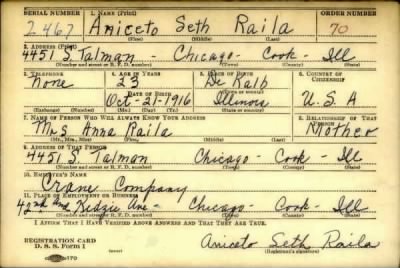 SERIAL NUMBER 1. NAME (Print) ORDER NUMBER
2467 Aniceto Seth Raila 70
(First) (Middle) (Last)
2. ADDRESS (Print)
4451 S. Talman - Chicago - Cook - Ill
(Number and street or R. F. D. number) (Town) (County) (State)
3. TELEPHONE 4. AGE IN YEARS 5. PLACE OF BIRTH 6. COUNTRY OF CITIZENSHIP
None 23 De Kalb
DATE OF BIRTH
Oct-21-1916 Illinois U.S.A
(Exchange) (Number) (Mo.) (Day) (Yr.) (State or country)
7. NAME OF PERSON WHO WILL ALWAYS KNOW YOUR ADDRESS 8. RELATIONSHIP OF THAT PERSON
Mrs Anna Raila Mother
(Mr., Mrs., Miss) (First) (Middle) (Last)
9. ADDRESS OF THAT PERSON
4451 S. Talman Chicago - Cook - Ill
(Number and street or R. F. D. number) (Town) (County) (State)
10. EMPLOYER'S NAME
Crane Company
11. PLACE OF EMPLOYMENT OR BUSINESS
42nd and Kedzie Ave - Chicago - Cook - Ill
(Number and street or R. F. D. number) (Town) (County) (State)
I AFFIRM THAT I HAVE VERIFIED ABOVE ANSWERS AND THAT THEY ARE TRUE.
REGISTRATION CARD
D. S. S. Form 1 Aniceto Seth Raila
(Registrant's signature)